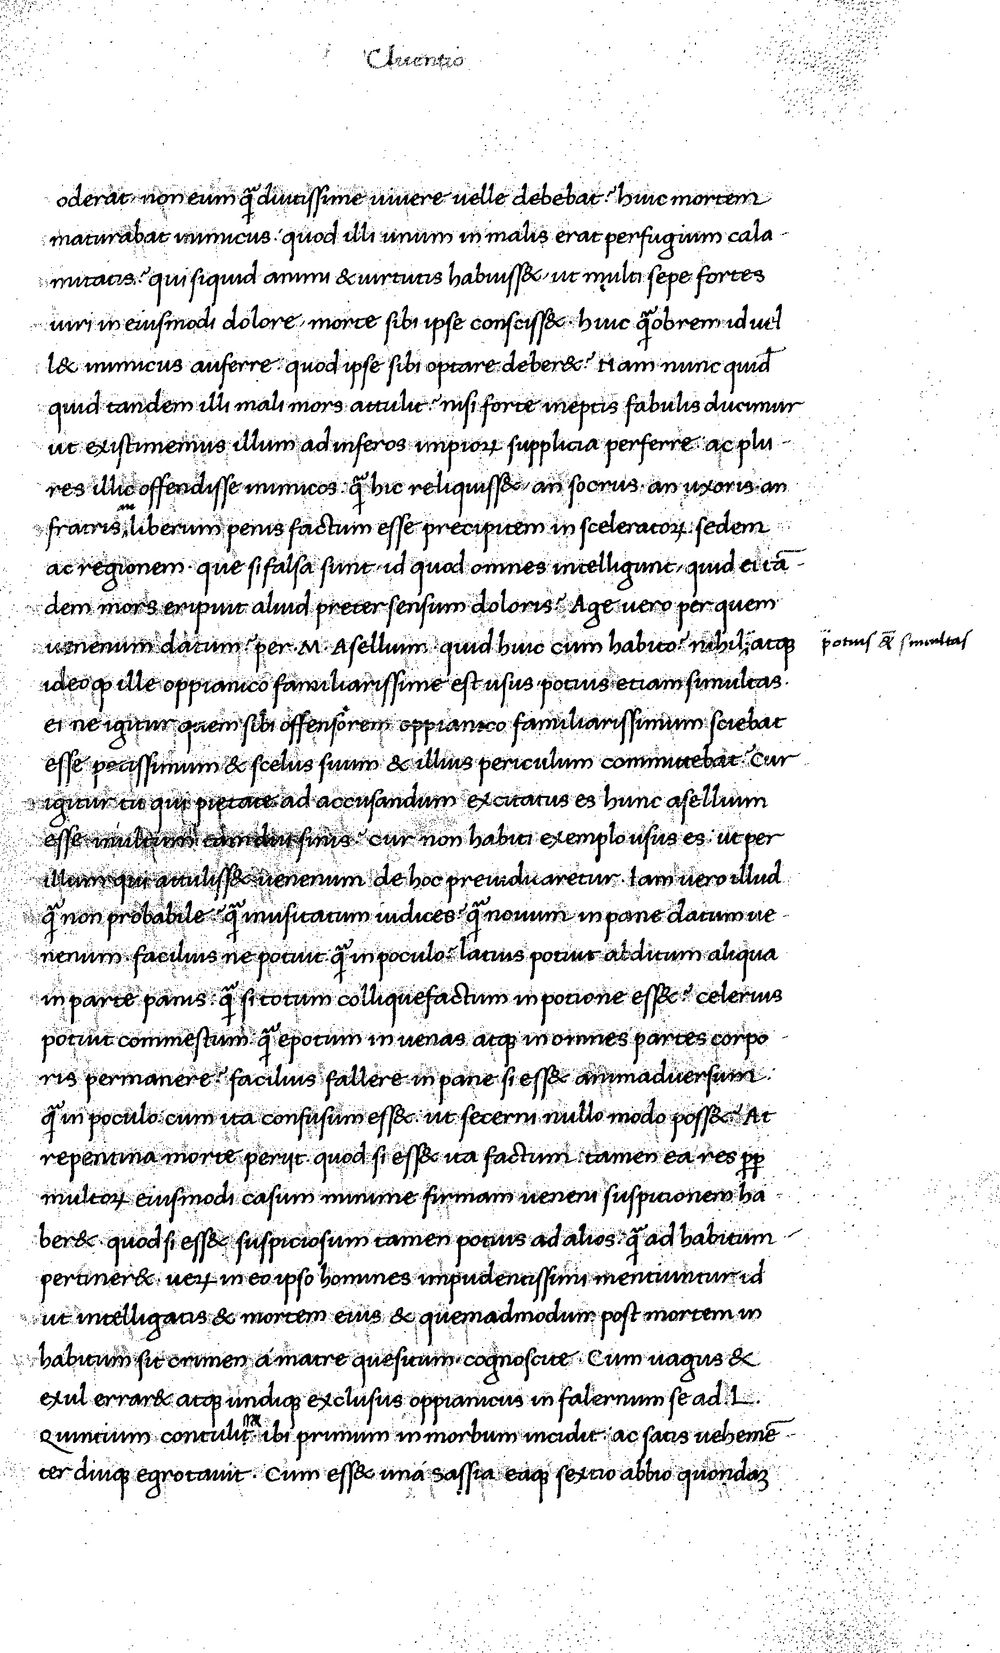 Cluentio
oderat. non eum q̃ȝ diutissime uiuere uelle debebat? huic mortem
maturabat inimicus. quod illi unum in malis erat perfugium cala-
mitatis? qui siquid animi & uirtutis habuiss&, ut multi sepe fortes
uiri in eiusmodi dolore, morte sibi ipse consciss&. huic q̃obrem id uel
l& inimicus auferre. quod ipse sibi optare deber&? Nam nunc quid̃
quid tandem illi mali mors attulit? nisi forte ineptis fabulis ducimur
ut existimemus illum ad inferos impioꝝ supplicia perferre. ac plu-
res illic offendisse inimicos. q̃ hic reliquiss&, an socrus. an uxoris. an
fratris, liberum penis factum esse precipitem in sceleratoꝝ sedem
ac regionem. que si falsa sunt, id quod omnes intelligunt, quid ei tā-
dem mors eripuit aliud preter sensum doloris? Age uero per quem
uenenum datum? per M. Asellium. quid huic cum habito? nihil; atqȝ
potius & simultas
ideoqȝ ille oppianico familiarissime est usus potius etiam simultas.
ei ne igitur quem sibi offensorem oppianico familiarissimum sciebat
esse potissimum & scelus suum & illius periculum committebat? Cur
igitur tu qui pietate ad accusandum excitatus es hunc asellium
esse inultum tam diu sinis? cur non habiti exemplo usus es: ut per
illum qui attuliss& uenenum de hoc preiudicaretur. Iam uero illud
q̃ non probabile? q̃ inusitatum iudices? q̃ nouum in pane datum ue-
nenum. facilius ne potuit q̃ in poculo? latius potiut abditum aliqua
in parte panis. q̃ si totum colliquefactum in potione ess&? celerius
potuit commestum q̃ epotum in uenas atqȝ in omnes partes corpo-
ris permanere? facilius fallere in pane si ess& animaduersum.
q̃ in poculo cum ita confusum ess&. ut secerni nullo modo poss&? At
repentina morte perijt. quod si ess& ita factum. tamen ea res ꝓp
multoꝝ eiusmodi casum minime firmam ueneni suspicionem ha-
ber&. quod si ess& suspiciosum tamen potius ad alios. q̃ ad habitum
pertiner&. ueꝝ in eo ipso homines impudentissimi mentiuntur id
ut intelligatis & mortem eius & quemadmodum post mortem in
habitum sit crimen a matre quesitum. cognoscite. Cum uagus &
exul errar& atqȝ undiqȝ exclusus oppianicus in falernum se ad .L.
Quintium contulit. ibi primum in morbum incidit. ac satis uehemē-
ter diuqȝ egrotauit. Cum ess& una sassia eaqȝ sextio abbio quondaȝ